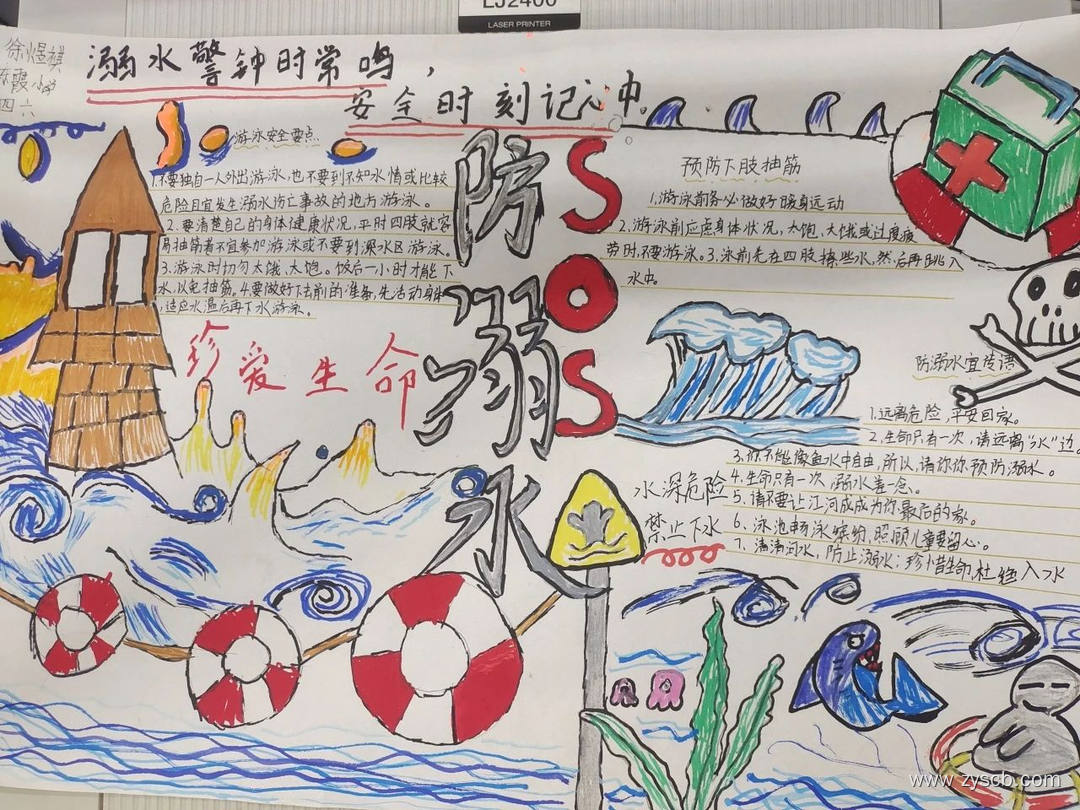 LJ2400
LASER PRINTER
徐煜祺
东霞小学
四 六
溺水警钟时常鸣，
安全时刻记心中。
游泳安全要点
1.不要独自一人外出游泳，也不要到不知水情或比较
危险且宜发生溺水伤亡事故的地方游泳。
2.要清楚自己的身体健康状况，平时四肢就容
易抽筋者不宜参加游泳或不要到深水区游泳。
3.游泳时切勿太饿、太饱。饭后一小时才能下
水，以免抽筋。4.要做好下去前的准备，先活动身体
，适应水温后再下水游泳。
珍爱生命
防溺水
SOS
预防下肢抽筋
1.游泳前务必做好暖身远动
2.游泳前应虑身体状况，太饱、太饿或过度疲
劳时，不要游泳。3.泳前先在四肢撩些水，然后再跳入
水中。
防溺水宣传语
1.远离危险，平安回家。
2.生命只有一次，请远离“水”边。
3.你不能像鱼水中自由，所以，请你你预防溺水。
4.生命只有一次，溺水善一念。
5.请不要让江河成成为你最后的家。
6.泳池畅泳缤纷，照顾儿童要留心。
7.清清河水，防止溺水；珍惜生命，杜绝入水
水深危险
禁止下水
www.zyscb.com